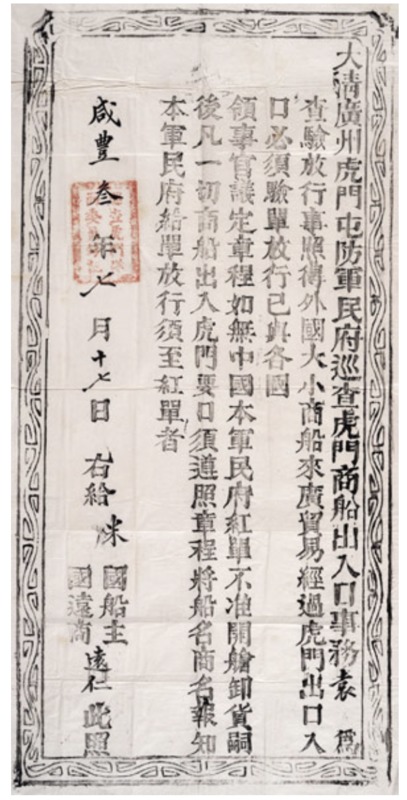 大清廣州虎門屯防軍民府巡查虎門商船出入口事務袁 爲
查驗放行事照得外國大小商船來廣貿易經過虎門出口入
口必須驗單放行已與各國
領事官議定章程如無中國本軍民府紅單不准開艙卸貨嗣
後凡一切商船出入虎門要口須遵照章程將船名商名報知
本軍民府給單放行須至紅單者
咸豐叁年七月十七日 右給
國船主
國遠商
遠仁 此照